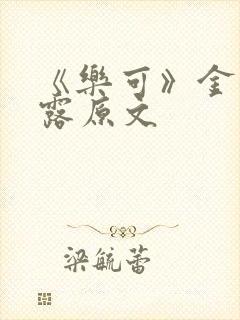 《樂可》金
露原文
梁毓蕾